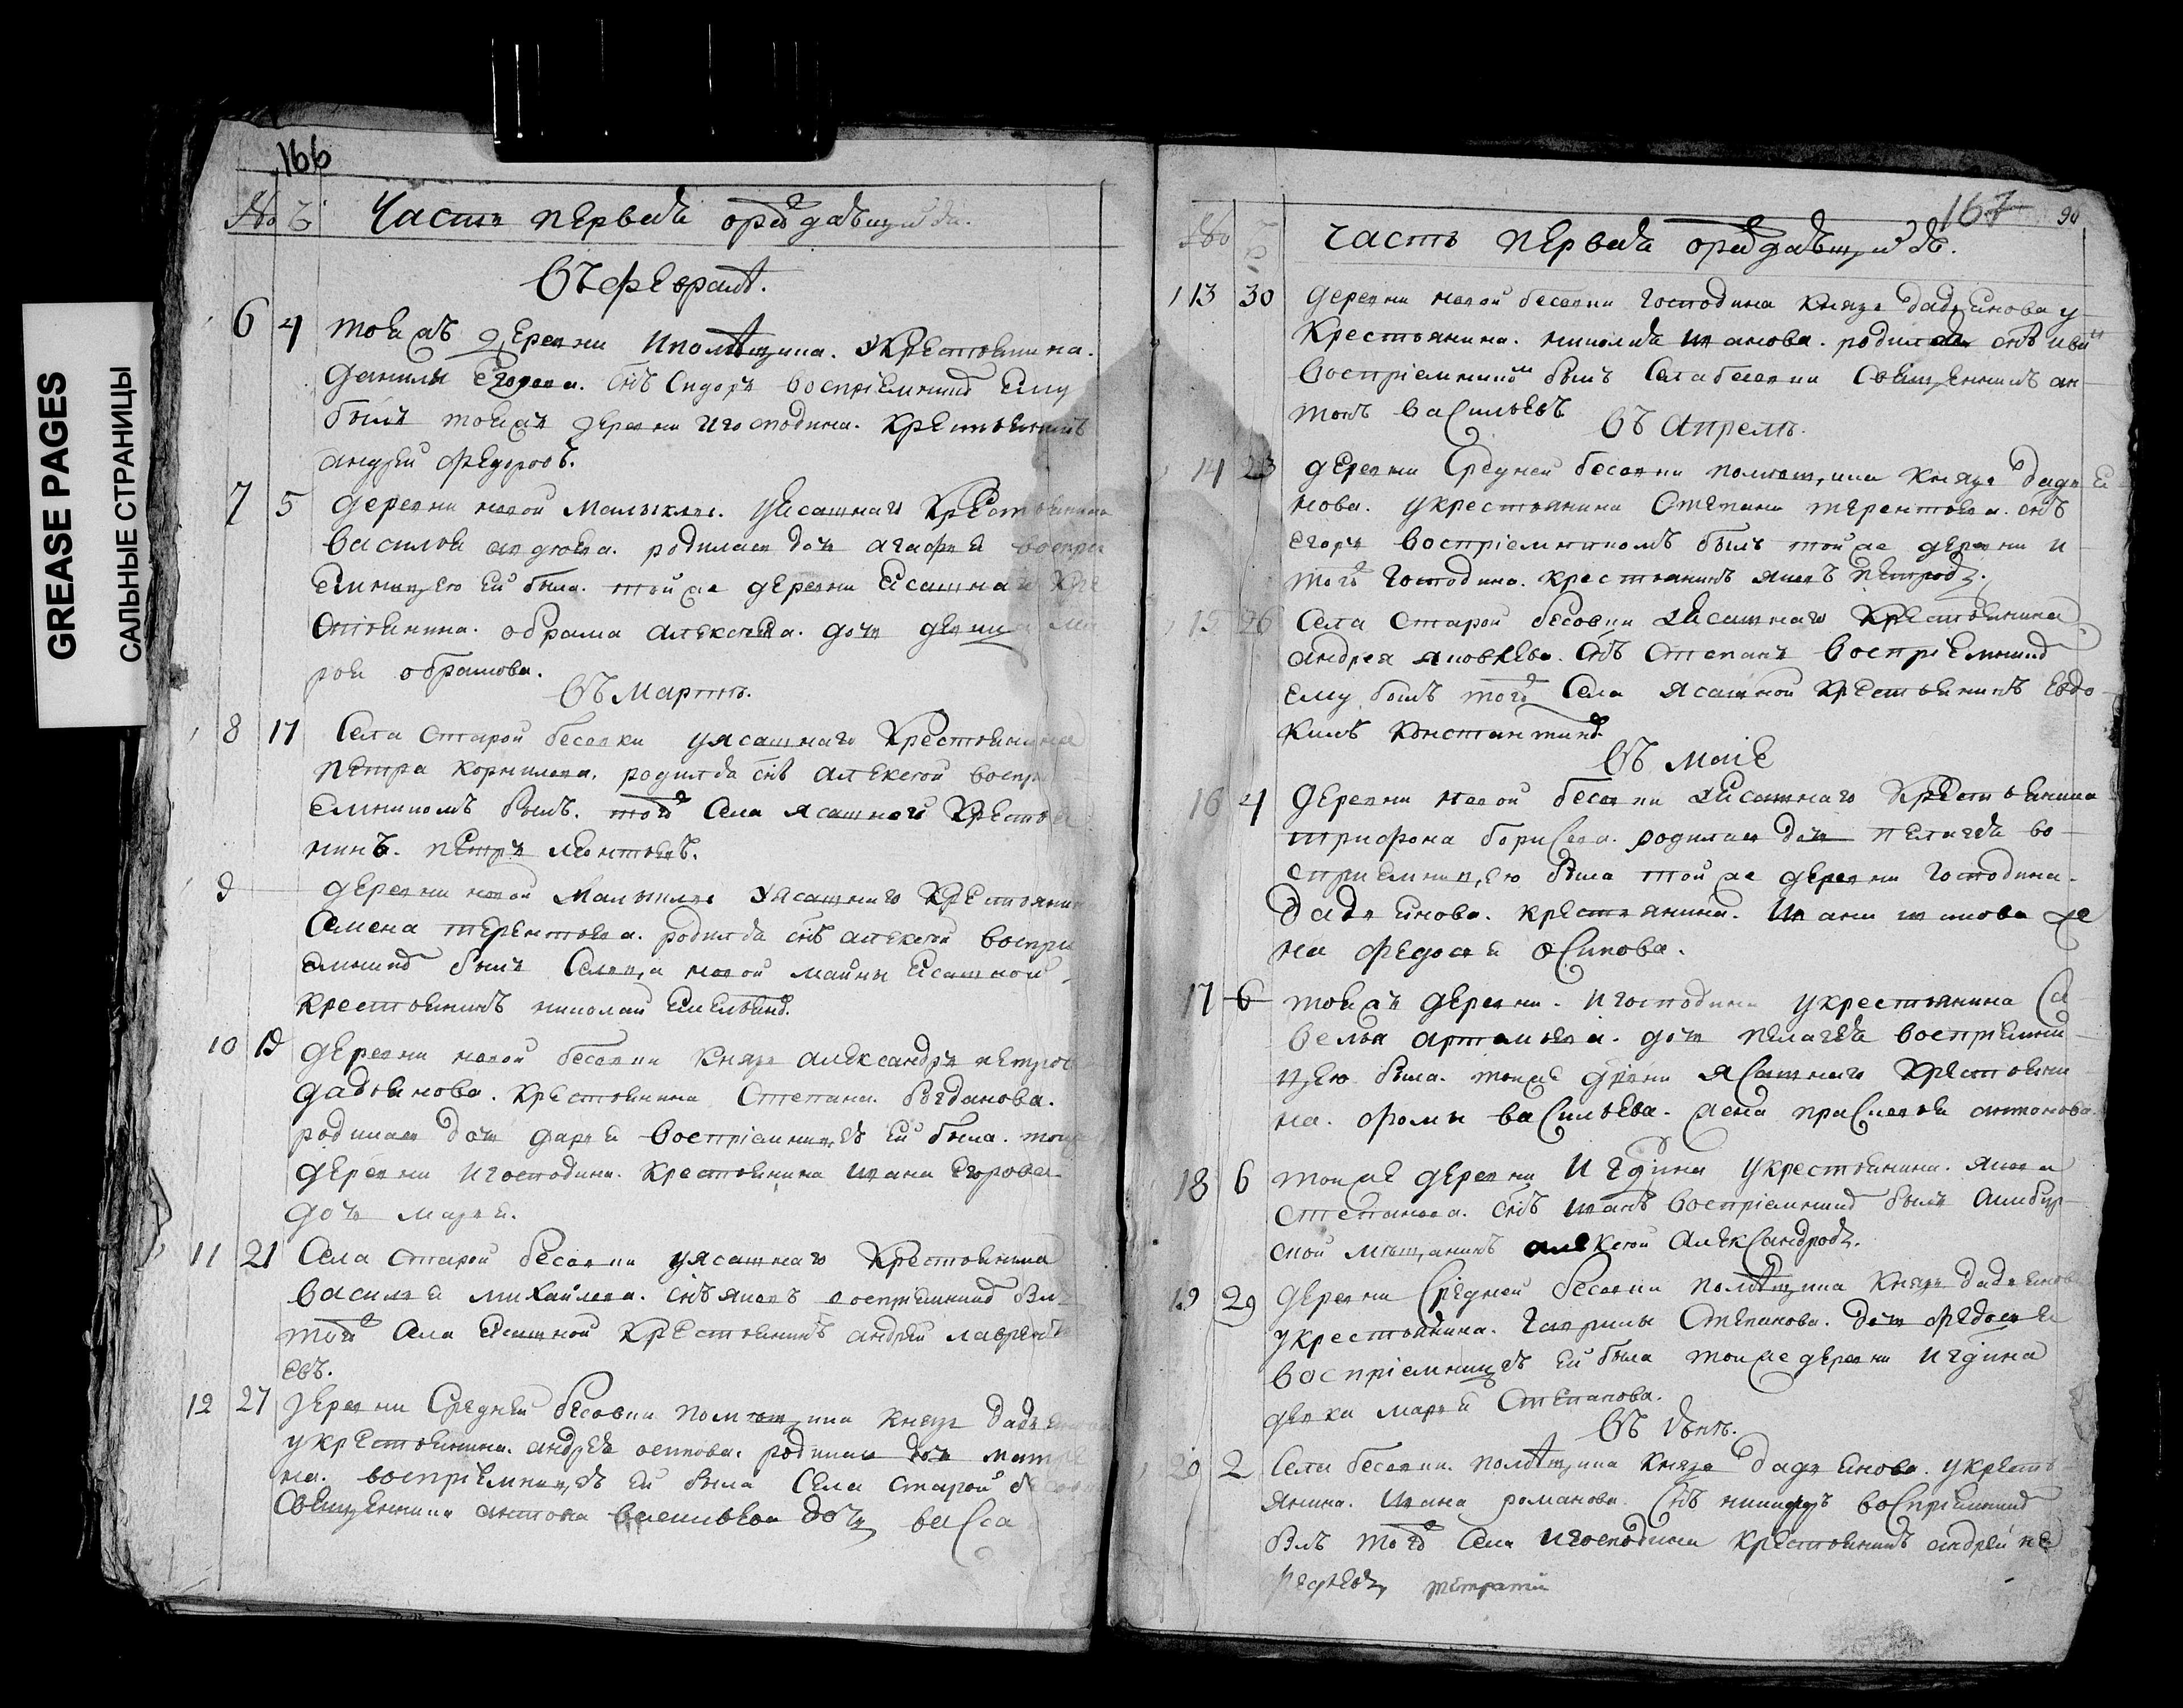 GREASE PAGES
САЛЬНЫЕ СТРАНИЦЫ
166
№ Ч Часть первая о раждающихся.
въ феврале.
6 4 тоя жъ деревни и помѣщика. у крестьянина.
данилы егорова. снъ сидоръ воспріемникъ ему
былъ тояжъ деревни и господина. крестьянинъ
андрей федоровъ.
7 5 деревни новой малыклы. у ясашнаго крестьянина
василья родилась дочь агафья воспри
емницею ей была. той же деревни ясашнаго кре
стьянина. обрама алексеева. дочь девица ма
рья обрамова.
въ марте.
8 17 села старой бесовки у ясашнаго крестьянина
петра корнилова. родился снъ алексей воспри
емникомъ былъ. того села ясашной крестья
нинъ. петръ леонтьевъ.
9 деревни новой малыклы у ясашнаго крестьянина
семена терентьева. родился снъ алексей воспри
емникъ былъ селца новой майны ясашной
крестьянинъ николай емельянов.
10 19 деревни новой бесовки князя александра петров
дадьянова. крестьянина степана богданова.
родилась дочь дарья воспріемница ей была. тояж
деревни и господина. крестьянина ивана егорова
дочь марья.
11 21 села старой бесовки у ясашнаго крестьянина
василья михайлова. снъ яковъ воспріемникъ былъ
того села ясашной крестьянинъ андрей лаврентъ
евъ.
12 27 деревни средней бесовки помѣщика князя дадьянова
у крестьянина. андрея осипова. родилась дочь матре
на. воспріемница ей была села старой бесовки
священника антона васильева дочь васса
167 90
№ часть первая о раждающихся.
13 30 деревни новой бесовки господина князя дадьянова у
крестьянина. николая иванова. родился снъ иванъ
воспріемникомъ былъ села бесовки священникъ ан
тонъ васильевъ
въ апреле.
14 23 деревни средней бесовки помѣщика князя дадья
нова. у крестьянина степана терентьева. снъ
егоръ воспріемникомъ былъ той же деревни и
того господина. крестьянинъ яковъ петровъ.
15 26 села старой бесовки ясашнаго крестьянина
андрея яковлева. снъ степанъ воспріемникъ
ему былъ того села ясашной крестьянинъ евдо
кимъ константинов.
въ маіе
16 4 деревни новой бесовки ясашнаго крестьянина
трифона борисова. родилась дочь пелагея во
сприемницею была той же деревни господина.
дадьянова. крестьянина. ивана иванова же
на федосья осипова.
17 6 тояжъ деревни. и господина у крестьянина са
велья артамонова. дочь пелагея воспріемни
цею была. тояже дрвни ясашнаго крестьяни
на. фомы васильева. жена прасковья антонова.
18 6 тояже деревни и гдина у крестьянина. якова
степанова. снъ иванъ воспріемникъ былъ симбир
ской мѣщанинъ алексей александровъ.
19 29 деревни средней бесовки помѣщика князя дадьянова
у крестьянина. гаврилы степанова. дочь федосья
воспріемница ей была тояже деревни и гдина
девка марья степанова.
въ іюне.
20 2 села бесовки. помѣщика князя дадьянова. у кресть
янина. ивана романова. снъ никифоръ воспріемникъ
былъ того села и господина крестьянинъ андрей не